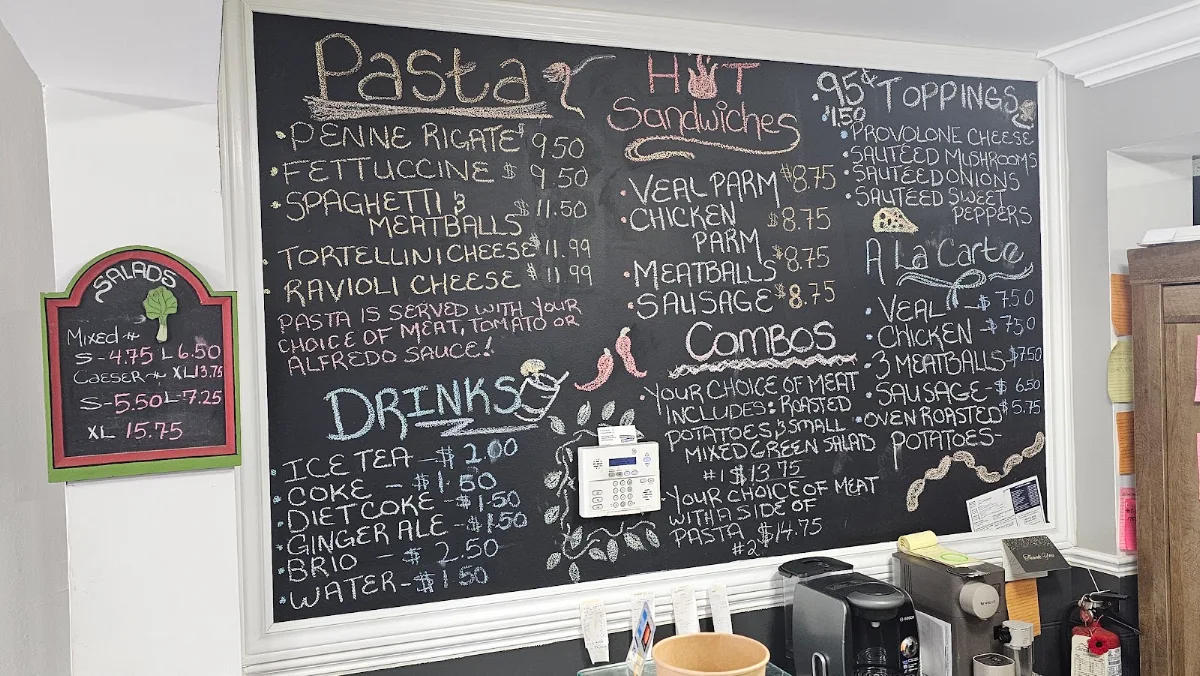 SALADS
Mixed
S-4.75 L6.50
Caeser XL13.75
S-5.50L-7.25
XL 15.75
Pasta
• PENNE RIGATE $ 9.50
• FETTUCCINE $ 9.50
• SPAGHETTI & MEATBALLS $ 11.50
• TORTELLINI CHEESE $ 11.99
• RAVIOLI CHEESE $ 11.99
PASTA IS SERVED WITH YOUR
CHOICE OF MEAT, TOMATO OR
ALFREDO SAUCE!
DRINKS
• ICE TEA - $ 2.00
• COKE - $1.50
• DIET COKE - $1.50
• GINGER ALE - $1.50
• BRIO - $ 2.50
• WATER - $1.50
HOT
Sandwiches
• VEAL PARM $8.75
• CHICKEN
PARM $8.75
• MEATBALLS $8.75
• SAUSAGE $8.75
Combos
• YOUR CHOICE OF MEAT
INCLUDES: ROASTED
POTATOES, & SMALL
MIXED GREEN SALAD
#1 $13.75
• YOUR CHOICE OF MEAT
WITH A SIDE OF
PASTA $14.75
#2
• 95¢ TOPPINGS
• $1.50
• PROVOLONE CHEESE
• SAUTÉED MUSHROOMS
• SAUTÉED ONIONS
• SAUTÉED SWEET
PEPPERS
A La Carte
• VEAL - $ 7.50
• CHICKEN - $ 7.50
• 3 MEATBALLS - $7.50
• SAUSAGE - $ 6.50
• OVEN ROASTED $ 5.75
POTATOES-
BOSCH